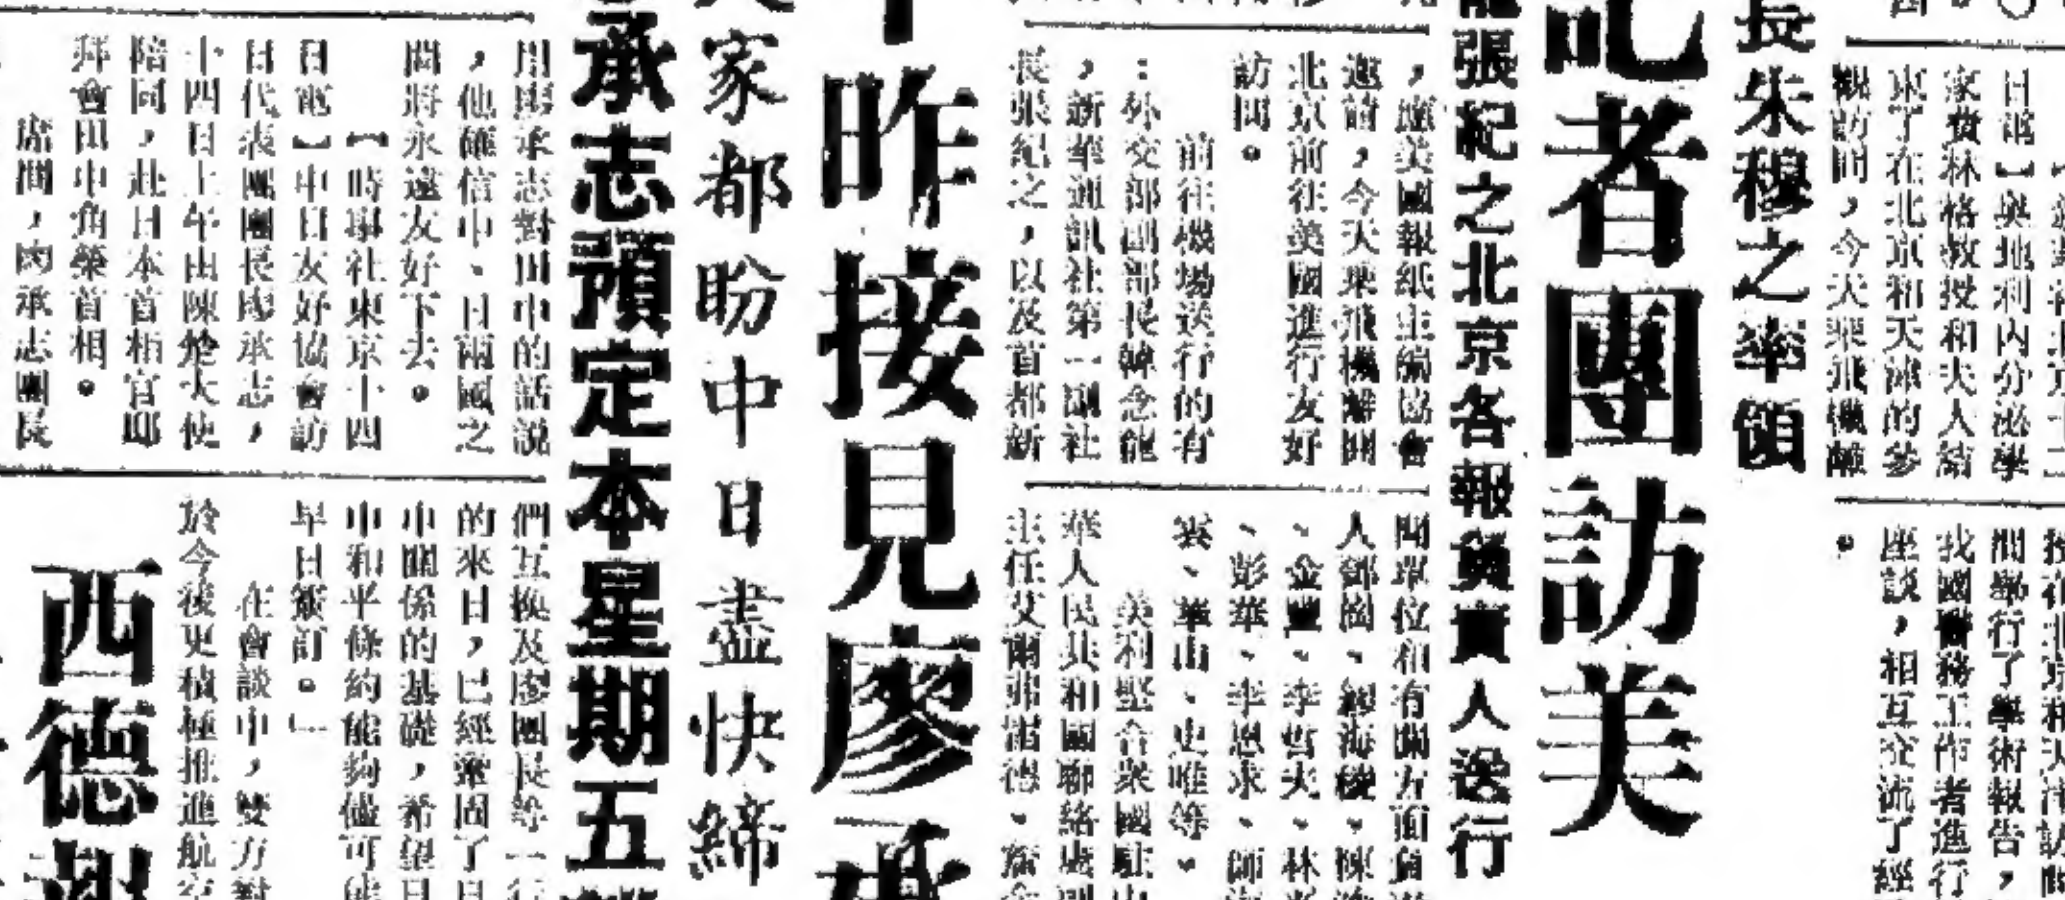 觀訪問，今天乘飛機離
東了在北京和天津的參
家費林格教授和夫人結
日電】奧地利內分泌學
座談，相互交流了經
我國醫務工作者進行
間舉行了學術報告，
長朱穆之率領
記者團訪美
龍張紀之北京各報負責人送行
，應美國報紙主編協會
邀請，今天乘飛機離開
北京前往美國進行友好
訪問。
前往機場送行的有
：外交部副部長韓念龍
，新華通訊社第一副社
長張紀之，以及首都新
聞單位和有關方面負責
人鄧崗、穆海稜、陳
、金豐、李哲夫、林
、彭華、李恩求、師
裳、華山、史唯等。
美利堅合衆國駐中
華人民共和國聯絡處副
主任艾爾弗雷德·
昨接見廖承
家都盼中日盡快締
承志預定本星期五
用廖承志對田中的話說
，他確信中、日兩國之
間將永遠友好下去。
【時事社東京十四
日電】中日友好協會訪
日代表團團長廖承志，
十四日上午由陳楚大使
陪同，赴日本首相官邸
拜會田中角榮首相。
席間，廖承志團長
們互換及廖團長等一行
的來日，已經鞏固了日
中關係的基礎，希望日
中和平條約能夠儘可能
早日簽訂。」
在會談中，雙方對
於今後更積極推進航空
西德